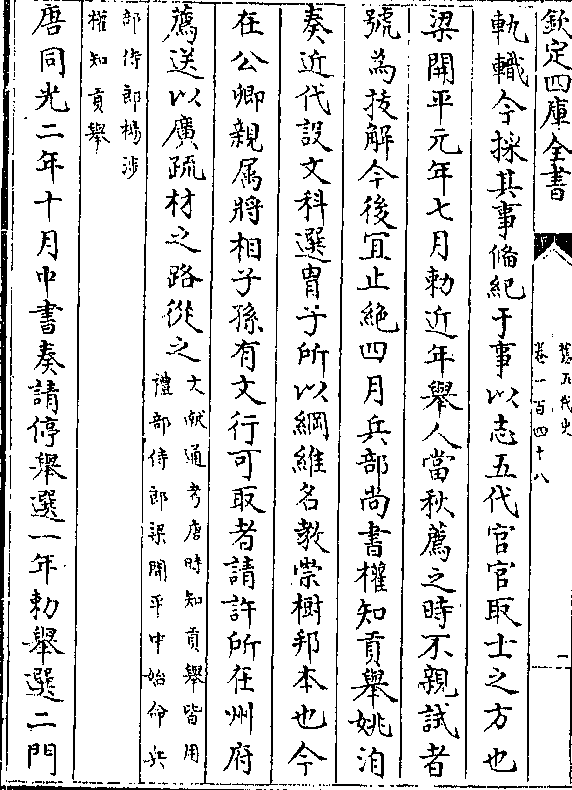 欽定四庫全書
舊五代史
卷一百四十八
一
軌轍今採其事備紀于事以志五代官官取士之方也
梁開平元年七月勅近年舉人當秋薦之時不親試者
號為拔解今後宜止絶四月兵部尚書權知貢舉姚洎
奏近代設文科選胄子所以綱維名教崇樹邦本也今
在公卿親属將相子孫有文行可取者請許所在州府
薦送以廣疏材之路從之
文献通考唐時知貢舉皆用
禮部侍郎梁開平中始命兵
部侍郎楊涉
權知貢舉
唐同光二年十月中書奏請停舉選一年勅舉選二門